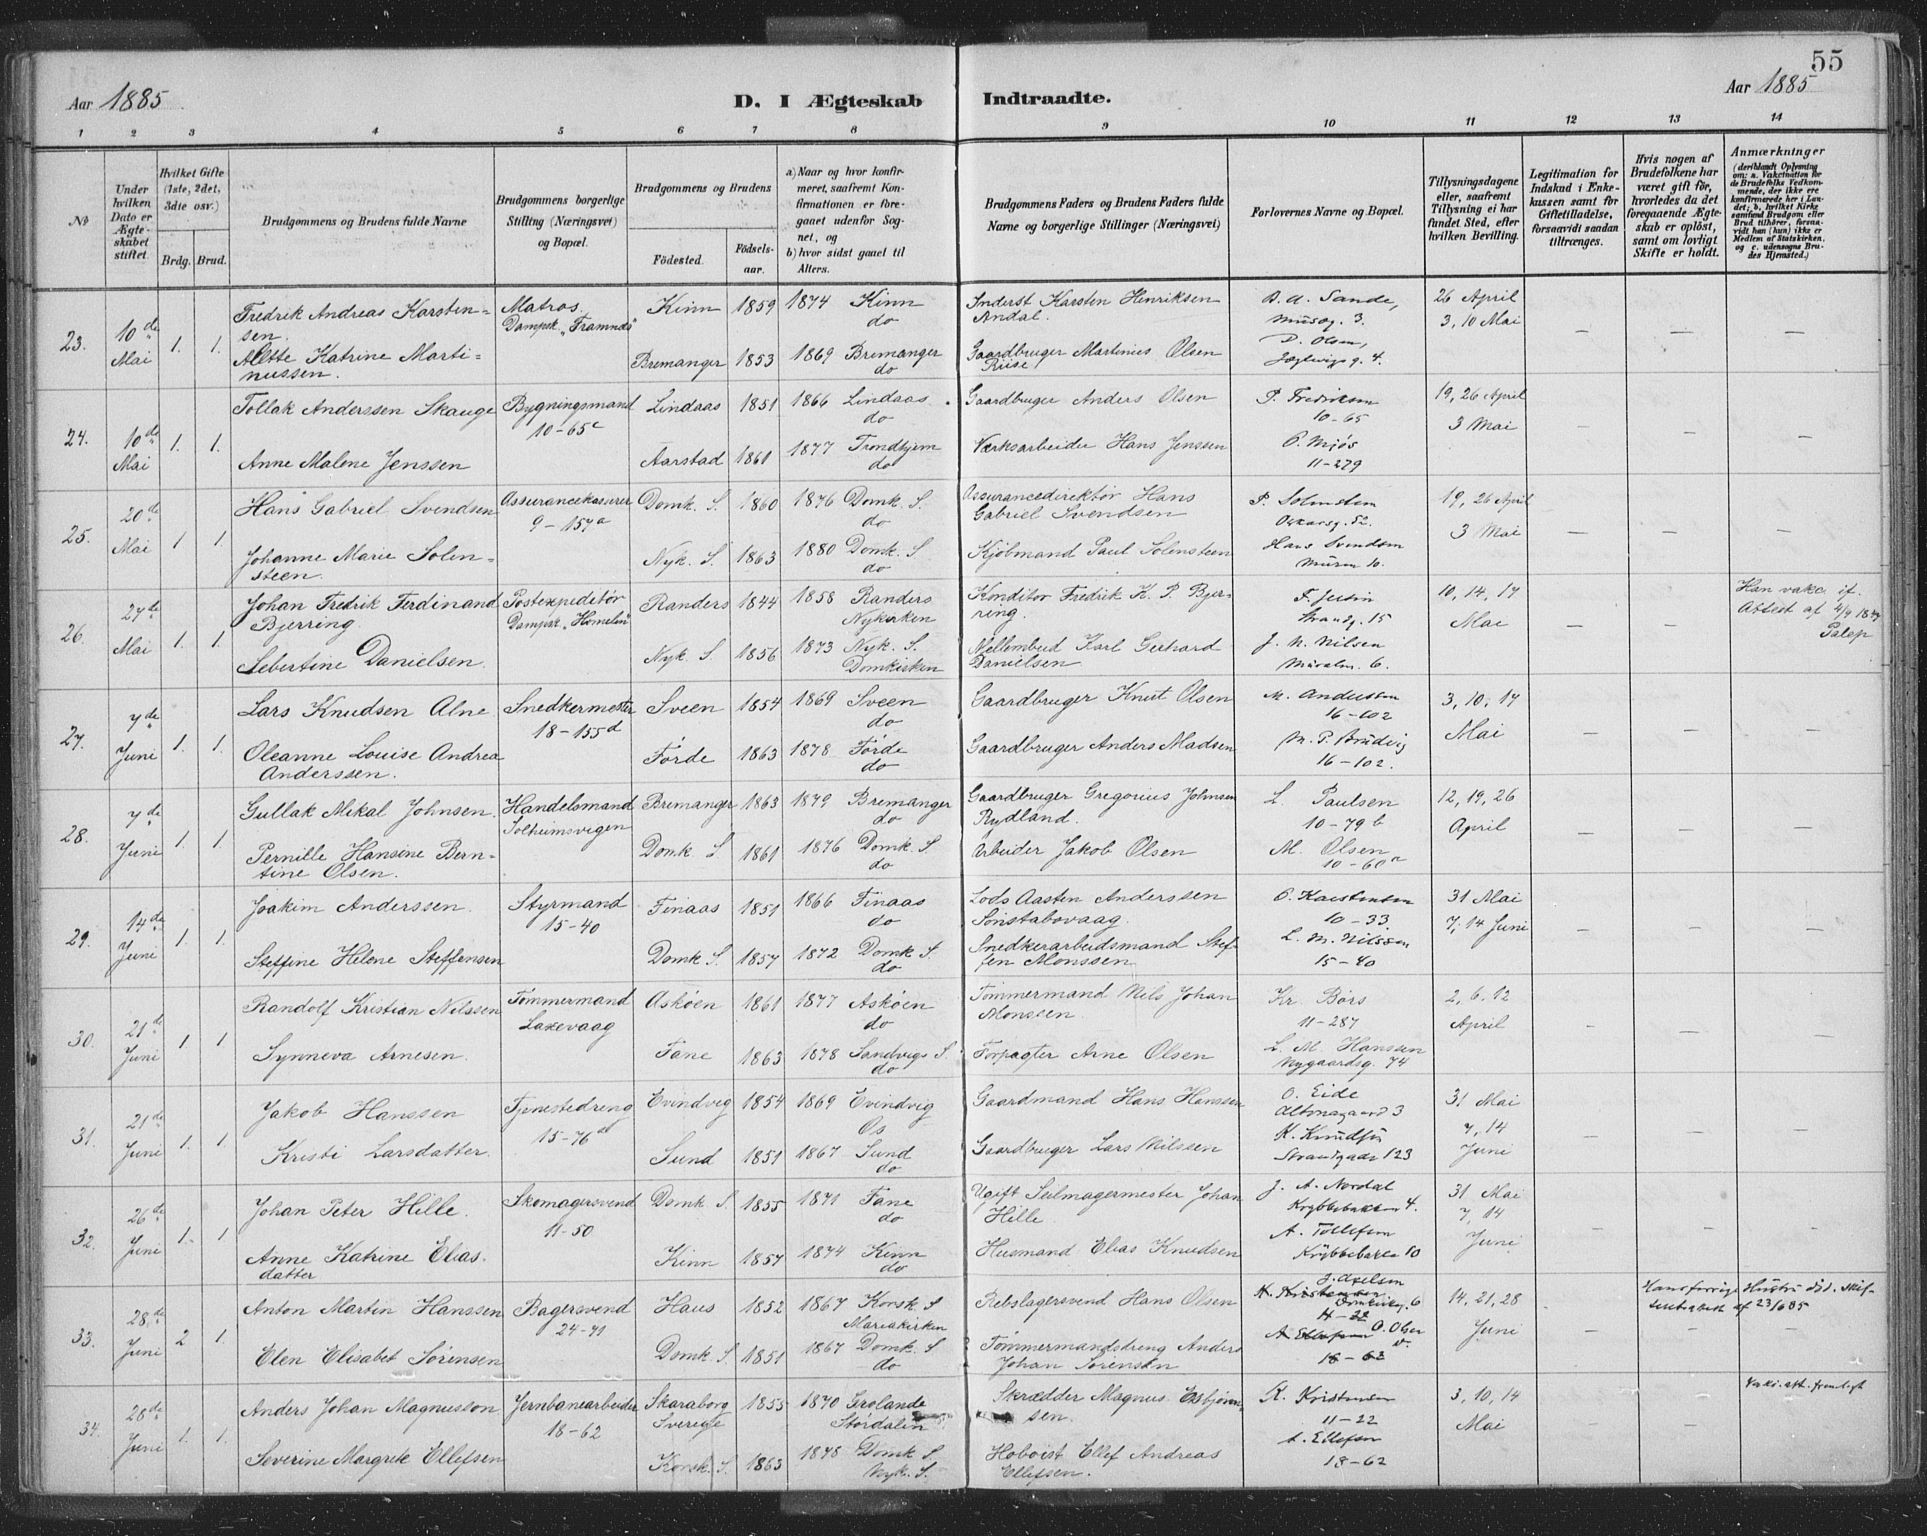 55
Aar 1885
D. I Ægteskab Indtraadte.
Aar 1885
1 2 3 4 5 6 7 8 9 10 11 12 13 14
№
Under hvilken Dato er Ægteskabet stiftet.
Hvilket Gifte (1ste, 2det, 3die osv.)
Brdg. Brud.
Brudgommens og Brudens fulde Navne
Brudgommens borgerlige Stilling (Næringsvei) og Bopæl.
Brudgommens og Brudens
Födested.
Födselsaar.
a) Naar og hvor konfirmeret, saafremt Konfirmationen er foregaaet udenfor Sognet, og
b) hvor sidst gaaet til Alters.
Brudgommens Faders og Brudens Faders fulde Navne og borgerlige Stillinger (Næringsvei)
Forlovernes Navne og Bopæl.
Tillysningsdagene eller, saafremt Tillysning ei har fundet Sted, efter hvilken Bevilling.
Legitimation for Indskud i Enkekassen samt for Giftetilladelse, forsaavidt saadan tiltrænges.
Hvis nogen af Brudefolkene har været gift før, hvorledes da det foregaaende Ægteskab er opløst, samt om lovligt Skifte er holdt.
Anmærkninger
23. 10de Mai 1. 1.
Fredrik Andreas Karstensen. Matros. Dampsk. „Framnæs“ Kinn 1859 1874 Kinn do
Inderst Karsten Henriksen Andal. B. A. Sande, Murag. 3. 26 April 3, 10 Mai
Alette Katrine Martinussen. Bremanger 1853 1869 Bremanger do
Gaardbruger Martinius Olsen Riise D. Olsen,
24. 10de Mai 1. 1.
Tollak Anderssen Skauge Bygningsmand 10-65c Lindaas 1851 1866 Lindaas do
Gaardbruger Anders Olsen P. Fredriksen 10-65 19, 26 April 3 Mai
Anne Malene Jenssen Aarstad 1861 1877 Trondhjem do
Værksarbeider Hans Jenssen O. Mjøs 11-279
25. 20de Mai 1. 1.
Hans Gabriel Svendsen Assurancekasserer 9-157a Domk. S. 1860 1876 Domk. S. do
Assurancedirektør Hans Gabriel Svendsen P. Solensten Oskarsg. 52. 19, 26 April 3 Mai
Johanne Marie Solensteen. Nyk. S. 1863 1880 Domk. S do
Kjøbmand Paul Solensteen Hans Svendsen Muren 10.
26. 27de Mai 1. 1.
Johan Fredrik Ferdinand Bjerring. Postexpeditør Dampsk. „Homelin“ Randers 1844 1858 Randers Nykirken
Konditor Fredrik K. P. Bjerring. Strandg. 15 10, 14, 17 Mai
Han vakc. if. Attest af
Sebertine Danielsen. Nyk. S 1856 1873 Nyk. S. Domkirken
Karl Gerhard Danielsen J. N. Nilsen Muralm. 6.
27. 7de Juni 1. 1.
Lars Knudsen Alne Snedkermester 18-155d Sveen 1854 1869 Sveen do
Gaardbruger Knut Olsen M. Anderssen 16-102 3, 10, 17 Mai
Oleanne Louise Andrea Anderssen. Førde 1863 1878 Førde do
Gaardbruger Anders Madsen 16-102.
28. 7de Juni 1. 1.
Gullak Mikal Johnsen. Handelsmand Solheimsvigen Bremanger 1863 1879 Bremanger do
Gaardbruger Gregorius Johnsen Rydland. L. Paulsen 10-79b 12, 19, 26 April
Pernille Hansine Berntine Olsen. Domk. S 1861 1876 Domk. S do
Arbeider Jakob Olsen M. Olsen 10-60a
29. 14de Juni 1. 1.
Joakim Anderssen. Styrmand 15-40 Finaas 1851 1866 Finaas do
Lods Aasten Anderssen Sønstabovaag. O. Karstensen 10-33. 31 Mai 7, 14 Juni
Steffine Helene Steffensen Domk S. 1857 1872 Domk. S. do
Snedkerarbeidsmand Steffen Monssen. L. M. Nilssen 15-40
30. 21de Juni 1. 1
Randolf Kristian Nilssen Tømmermand Laxevaag Askøen 1861 1877 Askøen do
Tømmermand Nils Johan Monssen. Kr. Børs 11-287 2, 6, 12 April
Synneva Arnesen. Fane 1863 1878 Sandvigs S. do
Forpagter Arne Olsen L. M. Hanssen Nygaardsg. 74
31. 21de Juni 1. 1.
Jakob Hanssen Tjenestedreng 15-76 Evindvig 1854 1869 Evindvig Os
Gaardmand Hans Hanssen O. Eide Altonagaard 3 31 Mai 7, 14 Juni
Kristi Larsdatter. Sund 1851 1867 Sund do
Gaardbruger Lars Nilssen K. Knudsen Strandgade 123
32. 26de Juni 1. 1
Johan Peter Hille. Skomagersvend 11-50 Domk S. 1855 1871 Fane do
Ugift Seilmagermester Johan Hille. J. A. Nordal Krybbebakken 4. 31 Mai 7, 14 Juni
Anne Katrine Eliasdatter Kinn 1857 1874 Kinn do
Husmand Elias Knudsen A. Tollefsen Krybbebakken 10
33. 28de Juni 2 1.
Anton Martin Hanssen Bagersvend 24-71 Haus 1852 1867 Korsk. S Mariakirken
Rebslagersvend Hans Olsen J. Axelsen 11-22 14, 21, 28 Juni
Hans forrige Hustru död. Skifteattest af 23/6 85
Elen Elisabet Sørensen Domk. S. 1851 1867 Domk. S do
Tømmermandsdreng Anders Johan Sørensen A. Ellefsen O. Olsen 18-62
34. 28de Juni 1. 1.
Anders Johan Magnusson Jernbanearbeider 18-62 Skaraborg Sverige 1855 1870 Grolande Stordalen
Skrædder Magnus Esbjørnsen. K. Kristensen 11-22 3, 10, 14 Mai
Vakc. att. fremlagt
Severine Margrete Ellefsen Korsk. S. 1863 1878 Domk. S Nyk. S.
Hoboist Ellef Andreas Ellefsen. A. Ellefsen 18-62